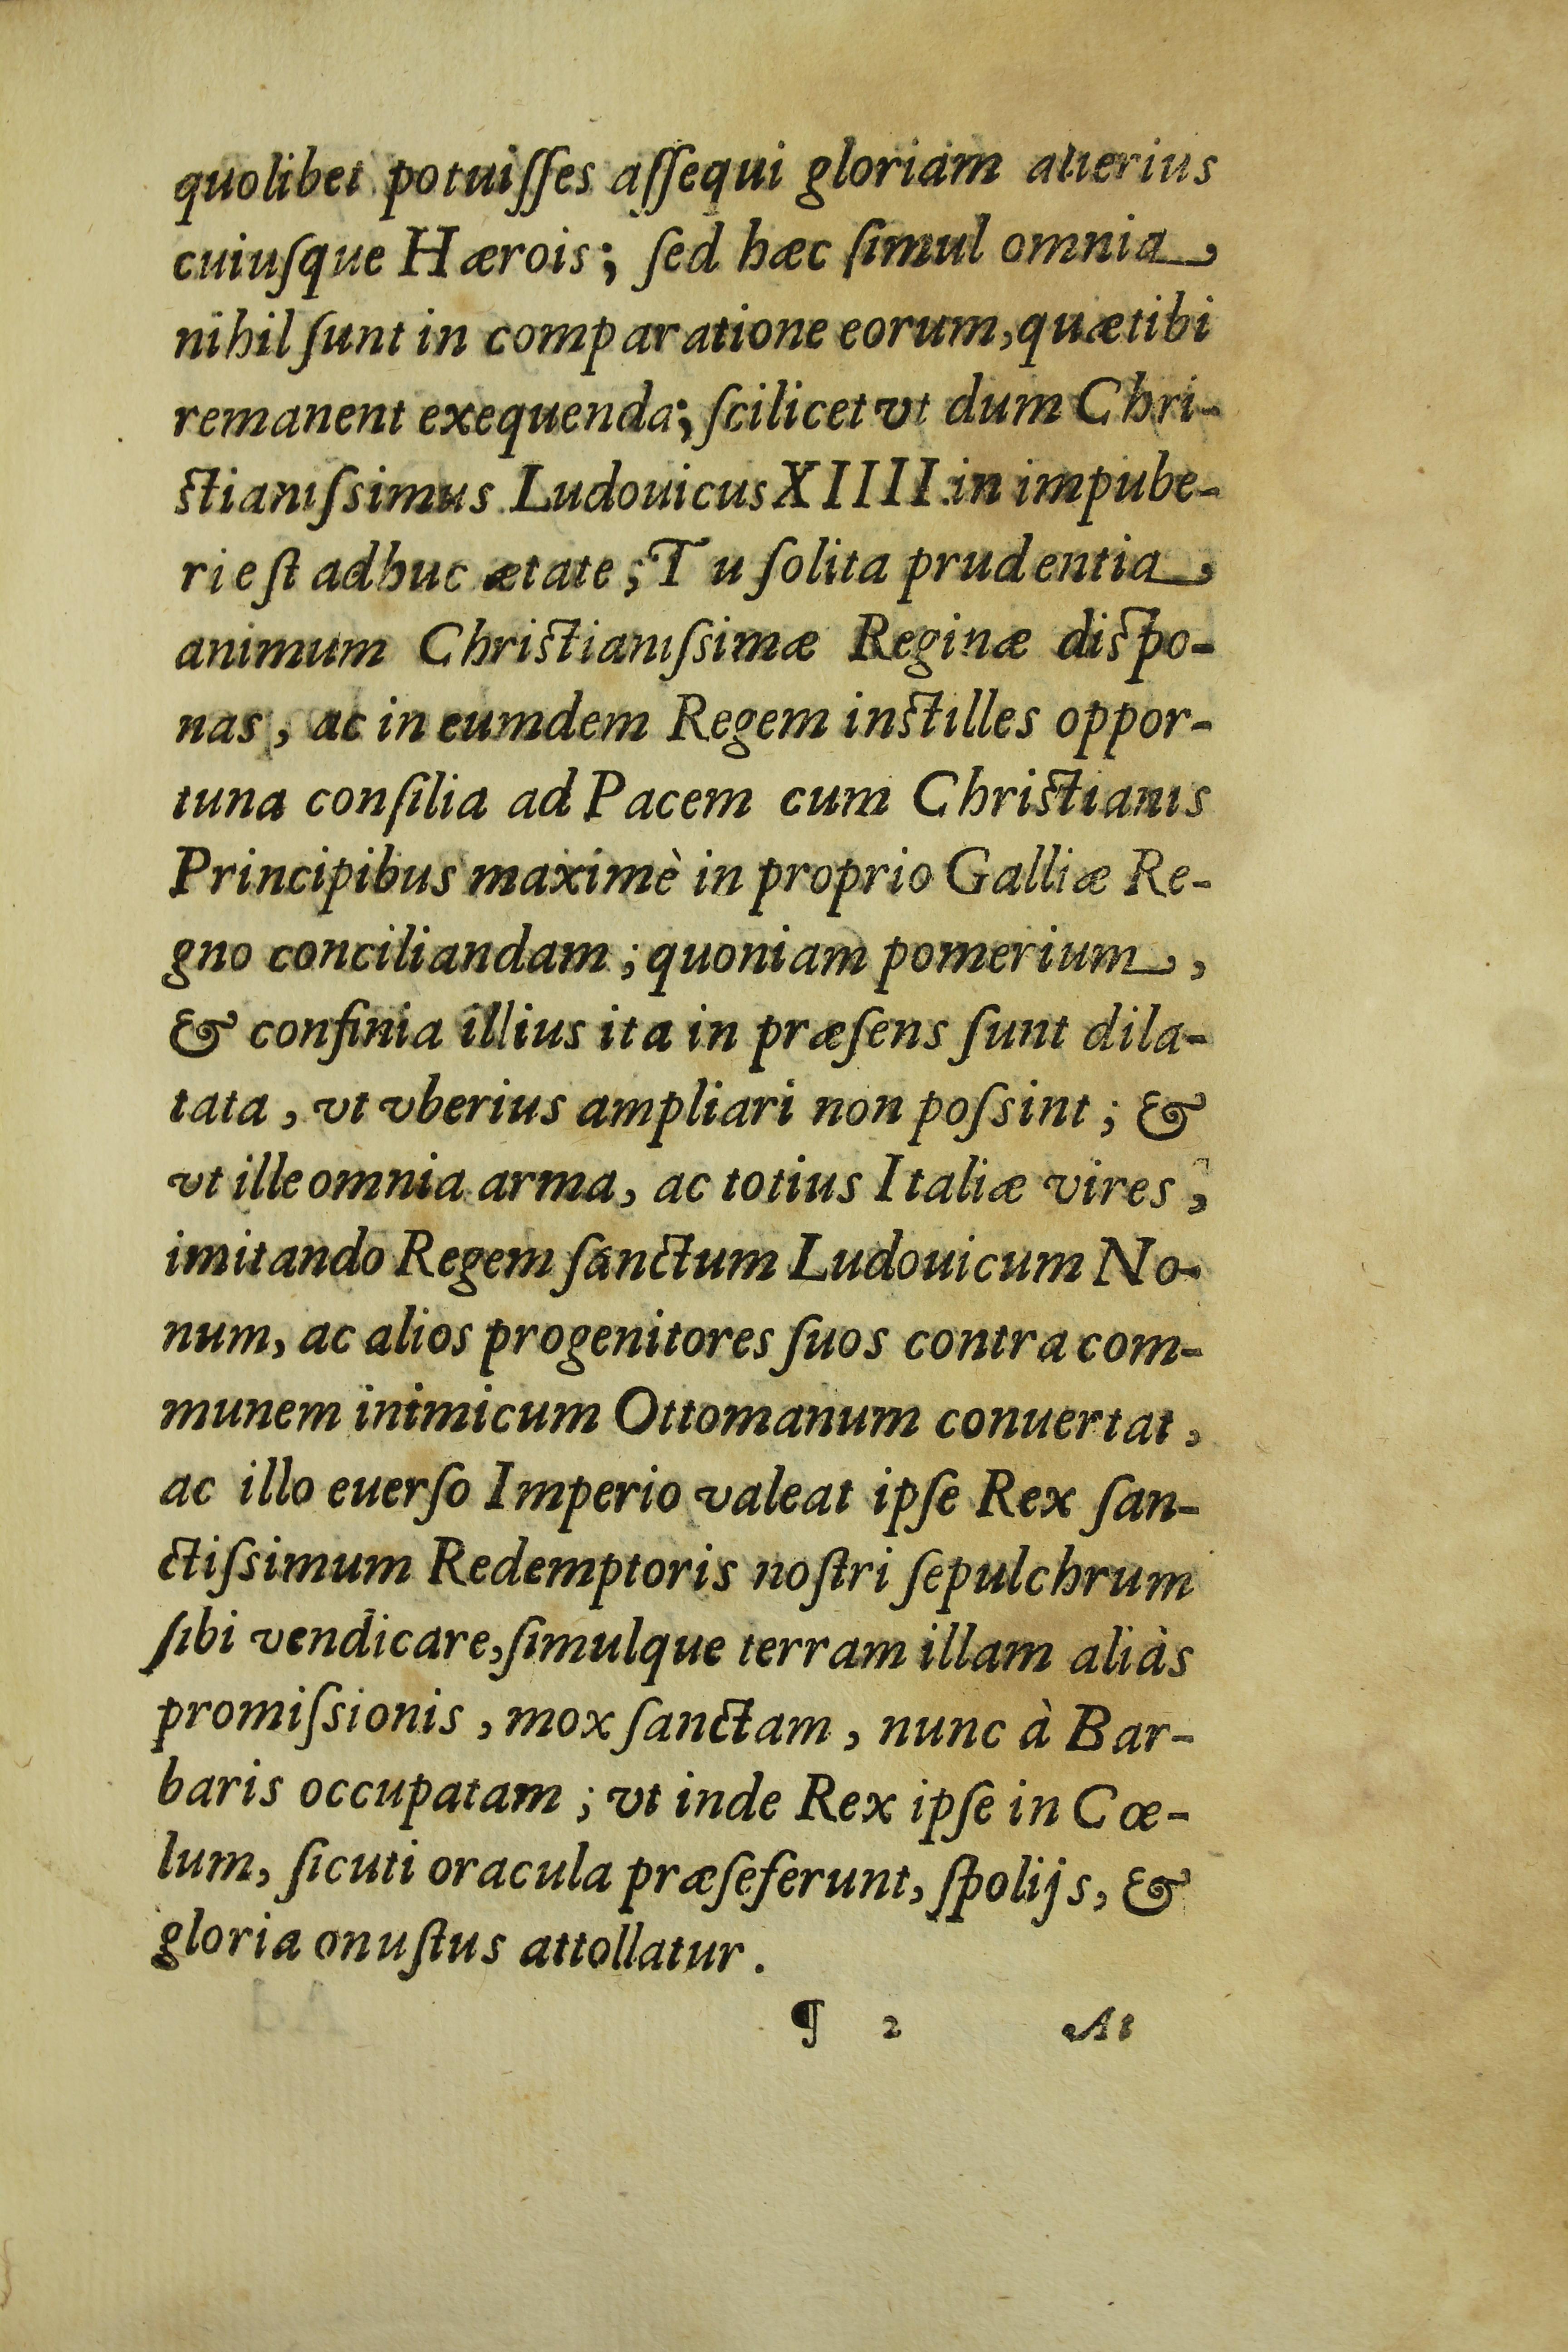 quolibet potuiſſes aſſequi gloriam alterius
cuiuſque Hærois; ſed hæc ſimul omnia,
nihil ſunt in comparatione eorum, quætibi
remanent exequenda; ſcilicet vt dum Chri-
ſtianiſsimus Ludouicus XIIII. in impube-
ri eſt adhuc ætate; Tu ſolita prudentia,
animum Chriſtianiſsimæ Reginæ diſpo-
nas, ac in eumdem Regem inſtilles oppor-
tuna conſilia ad Pacem cum Chriſtianis
Principibus maximè in proprio Galliæ Re-
gno conciliandam; quoniam pomerium,
& confinia illius ita in præſens ſunt dila-
tata, vt vberius ampliari non poſsint; &
vt ille omnia arma, ac totius Italiæ vires,
imitando Regem ſanctum Ludouicum No-
num, ac alios progenitores ſuos contra com-
munem inimicum Ottomanum conuertat,
ac illo euerſo Imperio valeat ipſe Rex ſan-
ctiſsimum Redemptoris noſtri ſepulchrum
ſibi vendicare, ſimulque terram illam aliàs
promiſsionis, mox ſanctam, nunc à Bar-
baris occupatam; vt inde Rex ipſe in Cœ-
lum, ſicuti oracula præſeferunt, ſpolijs, &
gloria onuſtus attollatur.
¶ 2 At